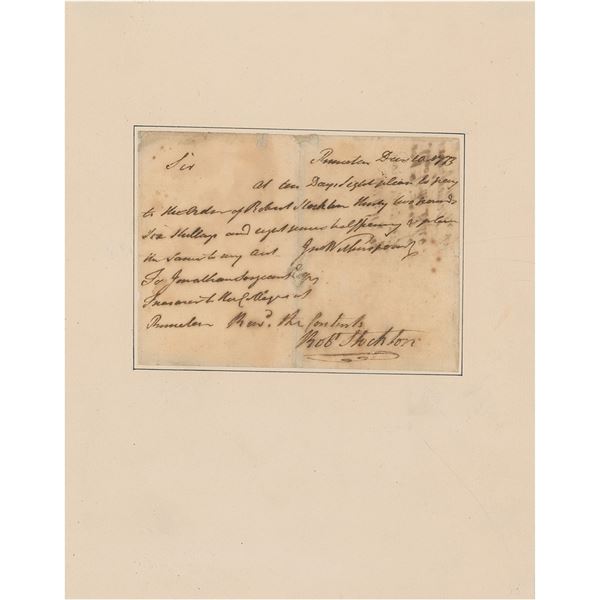 Princeton Decr 10 1773
Sir
At ten Days Sight please to pay
to the Order of Robert Stockton thirty two pounds
Six Shillings and eight pence halfpenny & place
the Same to my Acct Jno Witherspoon
To Jonathan Sergeant Esqr
Treasurer to the College at
Princeton Recd. the Contents
Robt Stockton